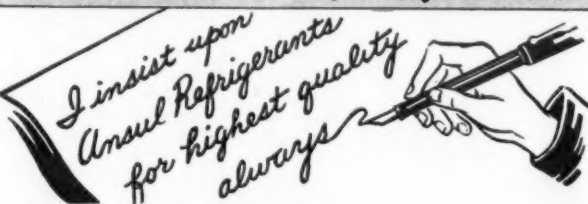 I insist upon
Ansul Refrigerants
for highest quality
always